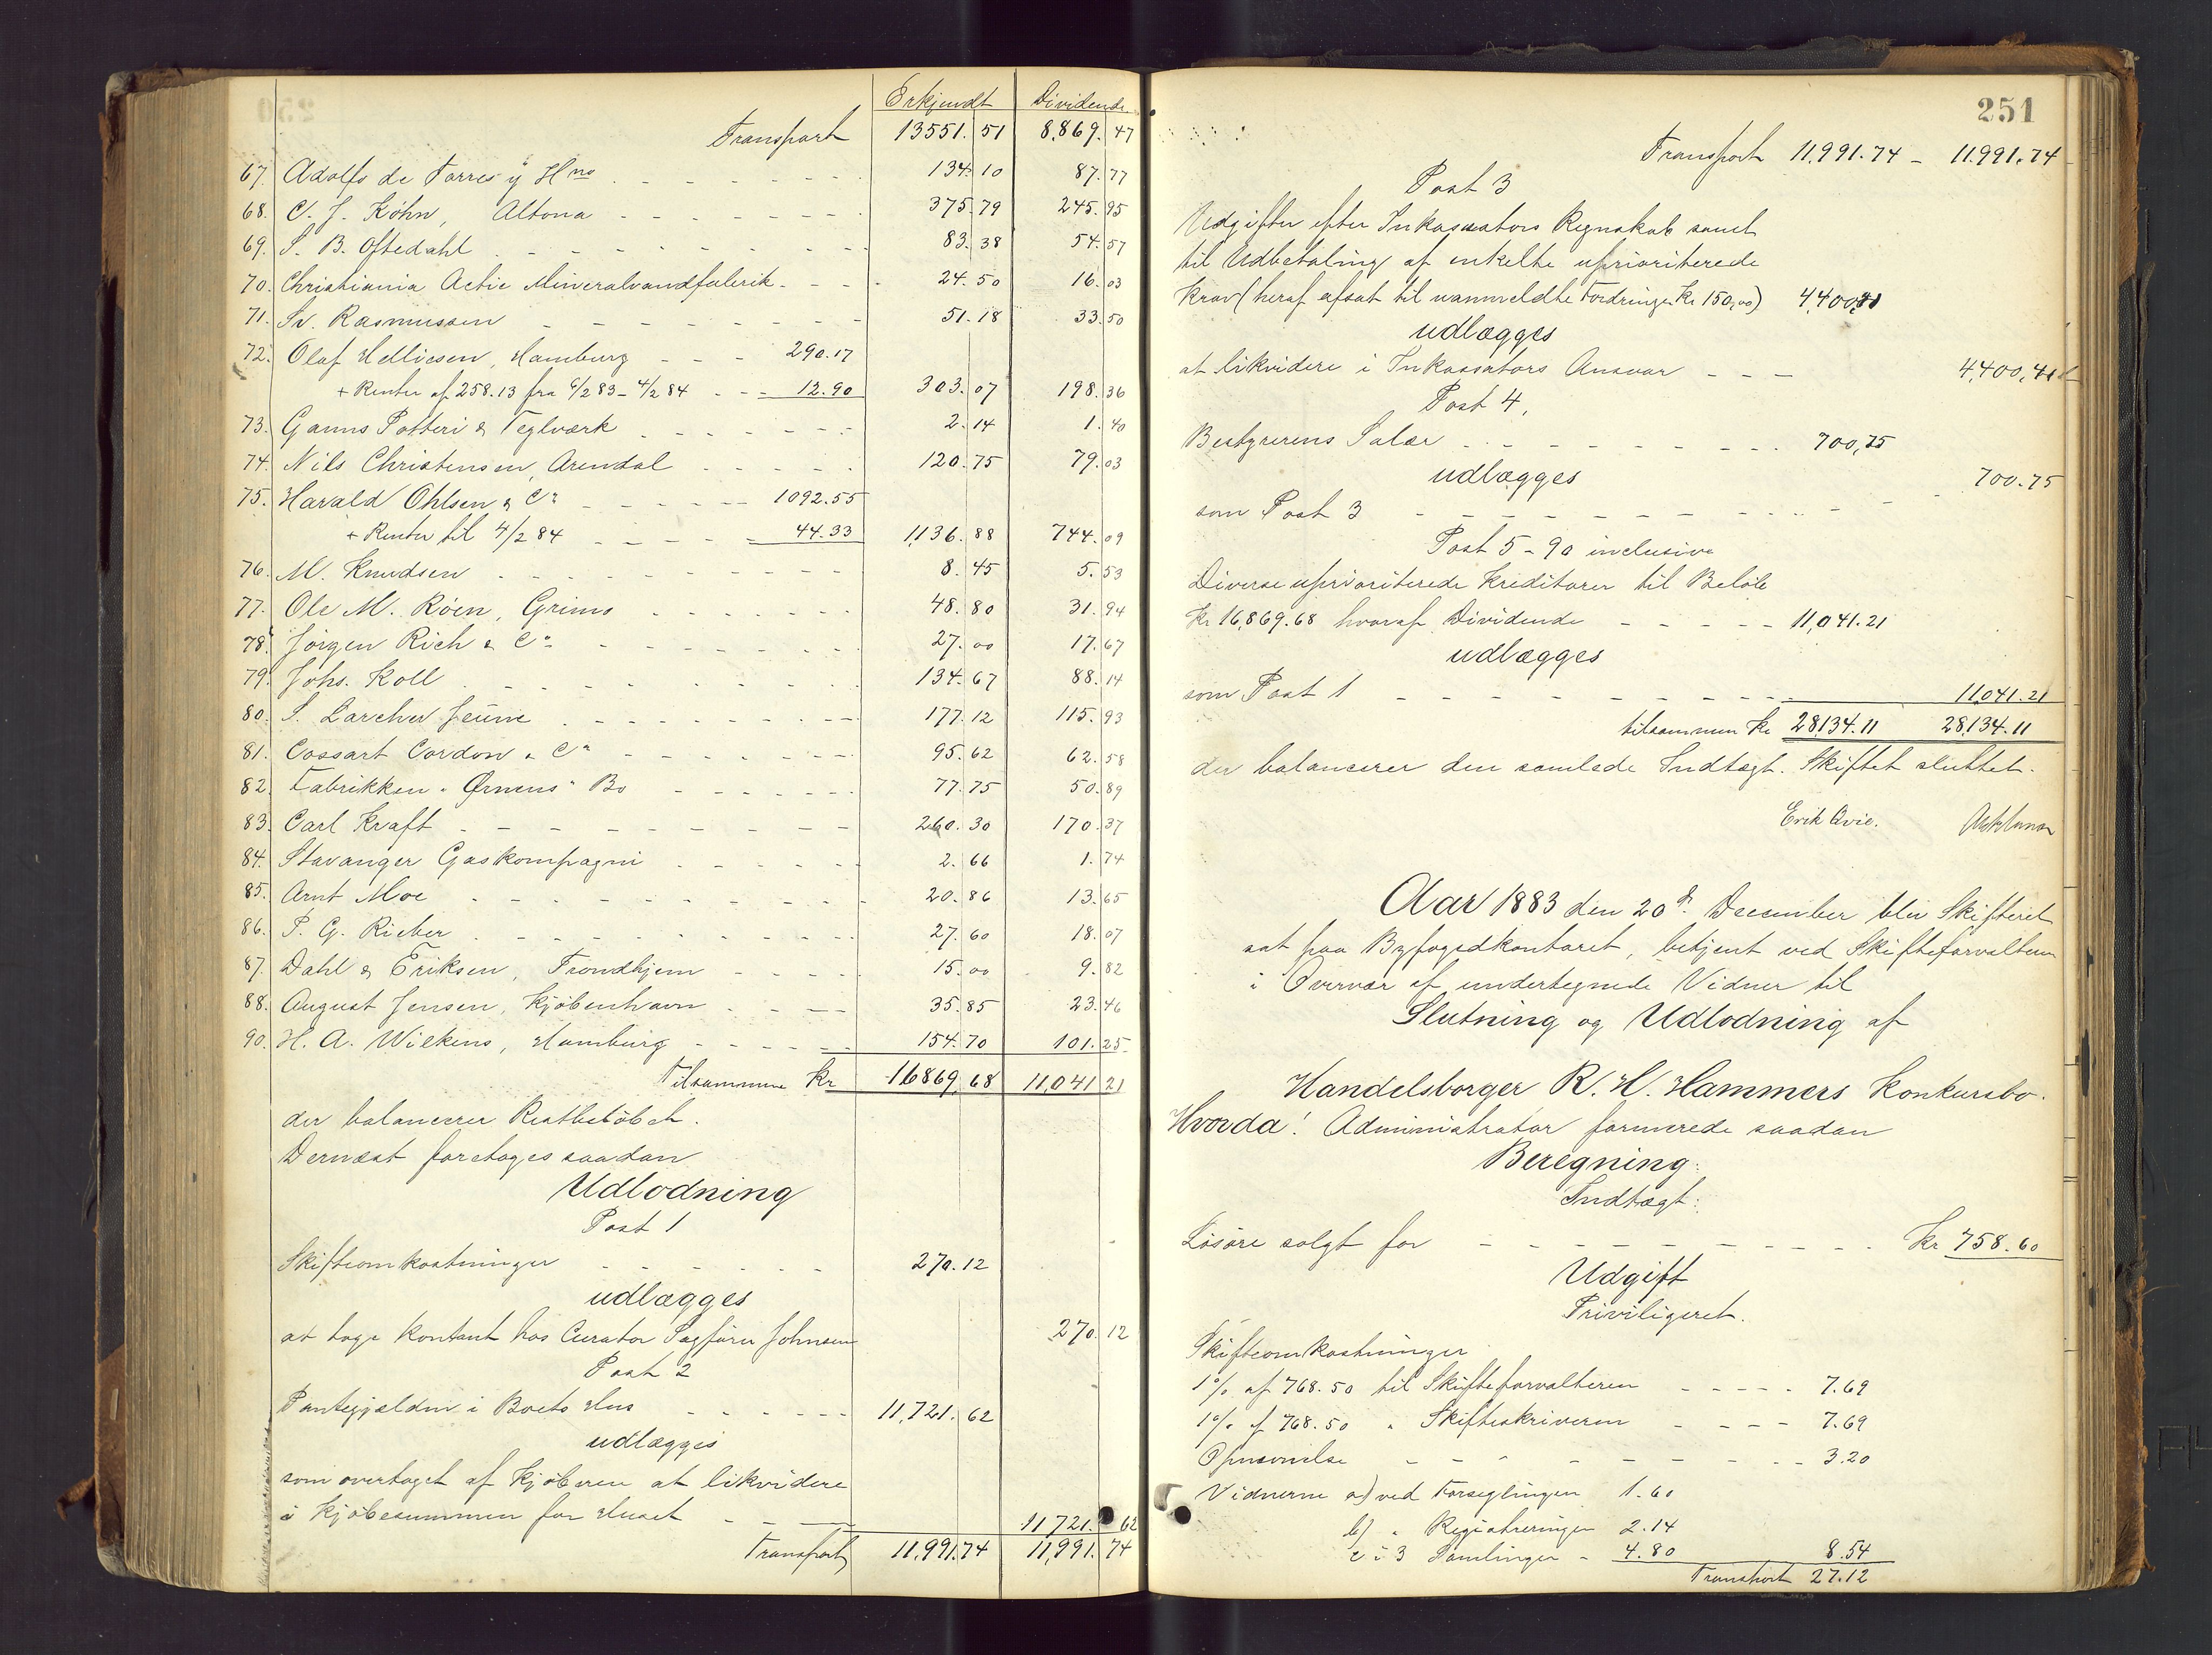 Erkjendt Dividende
Transport 13551.51 8,869.47
67. Adolfo de Torres ÿ Hno 134.10 87.77
68. C. J. Köhn, Altona 375.79 245.95
69. S. B. Oftedahl 83.38 54.57
70. Christiania Actie Mineralvandfabrik 24.50 16.03
71. Sv. Rasmussen 51.18 33.50
72. Olaf Helliesen, Hamburg 290.17
+ Renter af 258.13 fra 6/2 83 - 4/2 84 12.90 303.07 198.36
73. Ganns Potteri & Teglværk 2.14 1.40
74. Nils Christensen, Arendal 120.75 79.03
75. Harald Ohlsen & Co 1092.55
+ Renter til 4/2 84 44.33 1,136.88 744.09
76. M. Knudsen 8.45 5.53
77. Ole M. Röen, Grimo 48.80 31.94
78. Jörgen Rich & Co 27.00 17.67
79. Johs. Koll 134.67 88.14
80. S. Larcher Jeune 177.12 115.93
81. Cossart Cordon & Co 95.62 62.58
82. Fabrikken "Ørnens" Bo 77.75 50.89
83. Carl Kraft 260.30 170.37
84. Stavanger Gaskompagni 2.66 1.74
85. Arnt Moe 20.86 13.65
86. P. G. Rieber 27.60 18.07
87. Dahl & Eriksen, Trondhjem 15.00 9.82
88. August Jensen, Kjøbenhavn 35.85 23.46
90. H. A. Wilkens, Hamburg 154.70 101.25
Tilsammen Kr 16869,68 11,041 21
der balancerer Restbeløbet.
Dernæst foretoges saadan
Udlodning
Post 1
Skifteomkostninger 270.12
udlægges
at tage kontant hos Curator Sagfører Johnsen 270.12
Post 2
Pantegjælden i Boets Hus 11,721.62
udlægges
som overtaget af Kjøberen at likvidere
i Kjøbesummen for Huset 11721.62
Transport 11,991.74 11,991.74
251
Transport 11,991.74 - 11,991.74
Post 3
Udgifter efter Inkassators Regnskab samt
til Udbetaling af enkelte uprioriterede
Krav (heraf afsat til uanmeldte Fordringer Kr 150,00) 4,400,41
udlægges
at likvidere i Inkassators Ansvar 4,400,41
Post 4,
Bestyrerens Salær 700,75
udlægges
som Post 3 700.75
Post 5 - 90 inclusive
Diverse uprioriterede Kreditorer til Beløb
Kr 16,869.68 hvoraf Dividende 11,041.21
udlægges
som Post 1 11,041.21
tilsammen Kr 28,134.11 28,134.11
der balancerer den samlede Indtægt. Skiftet sluttet.
Erik Qvie.
Aar 1883 den 20de December blev Skifteret
sat paa Byfogedkontoret, betjent ved Skifteforvalteren
i Overvær af undertegnede Vidner til
Slutning og Udlodning af
Handelsborger R. H. Hammers Konkursbo.
Hvorda! Administrator formerede saadan
Beregning:
Indtægt:
Løsøre solgt for Kr 758.60
Udgift
Priviligeret.
Skifteomkostninger
1% af 768.50 til Skifteforvalteren 7.69
1% af 768.50 " Skifteskriveren 7.69
Opnævnelse 3.20
Vidnerne a) ved Forseglingen 1.60
b) " Registreringen 2.14
c i 3 Samlinger 4.80 8.54
Transport 27.12